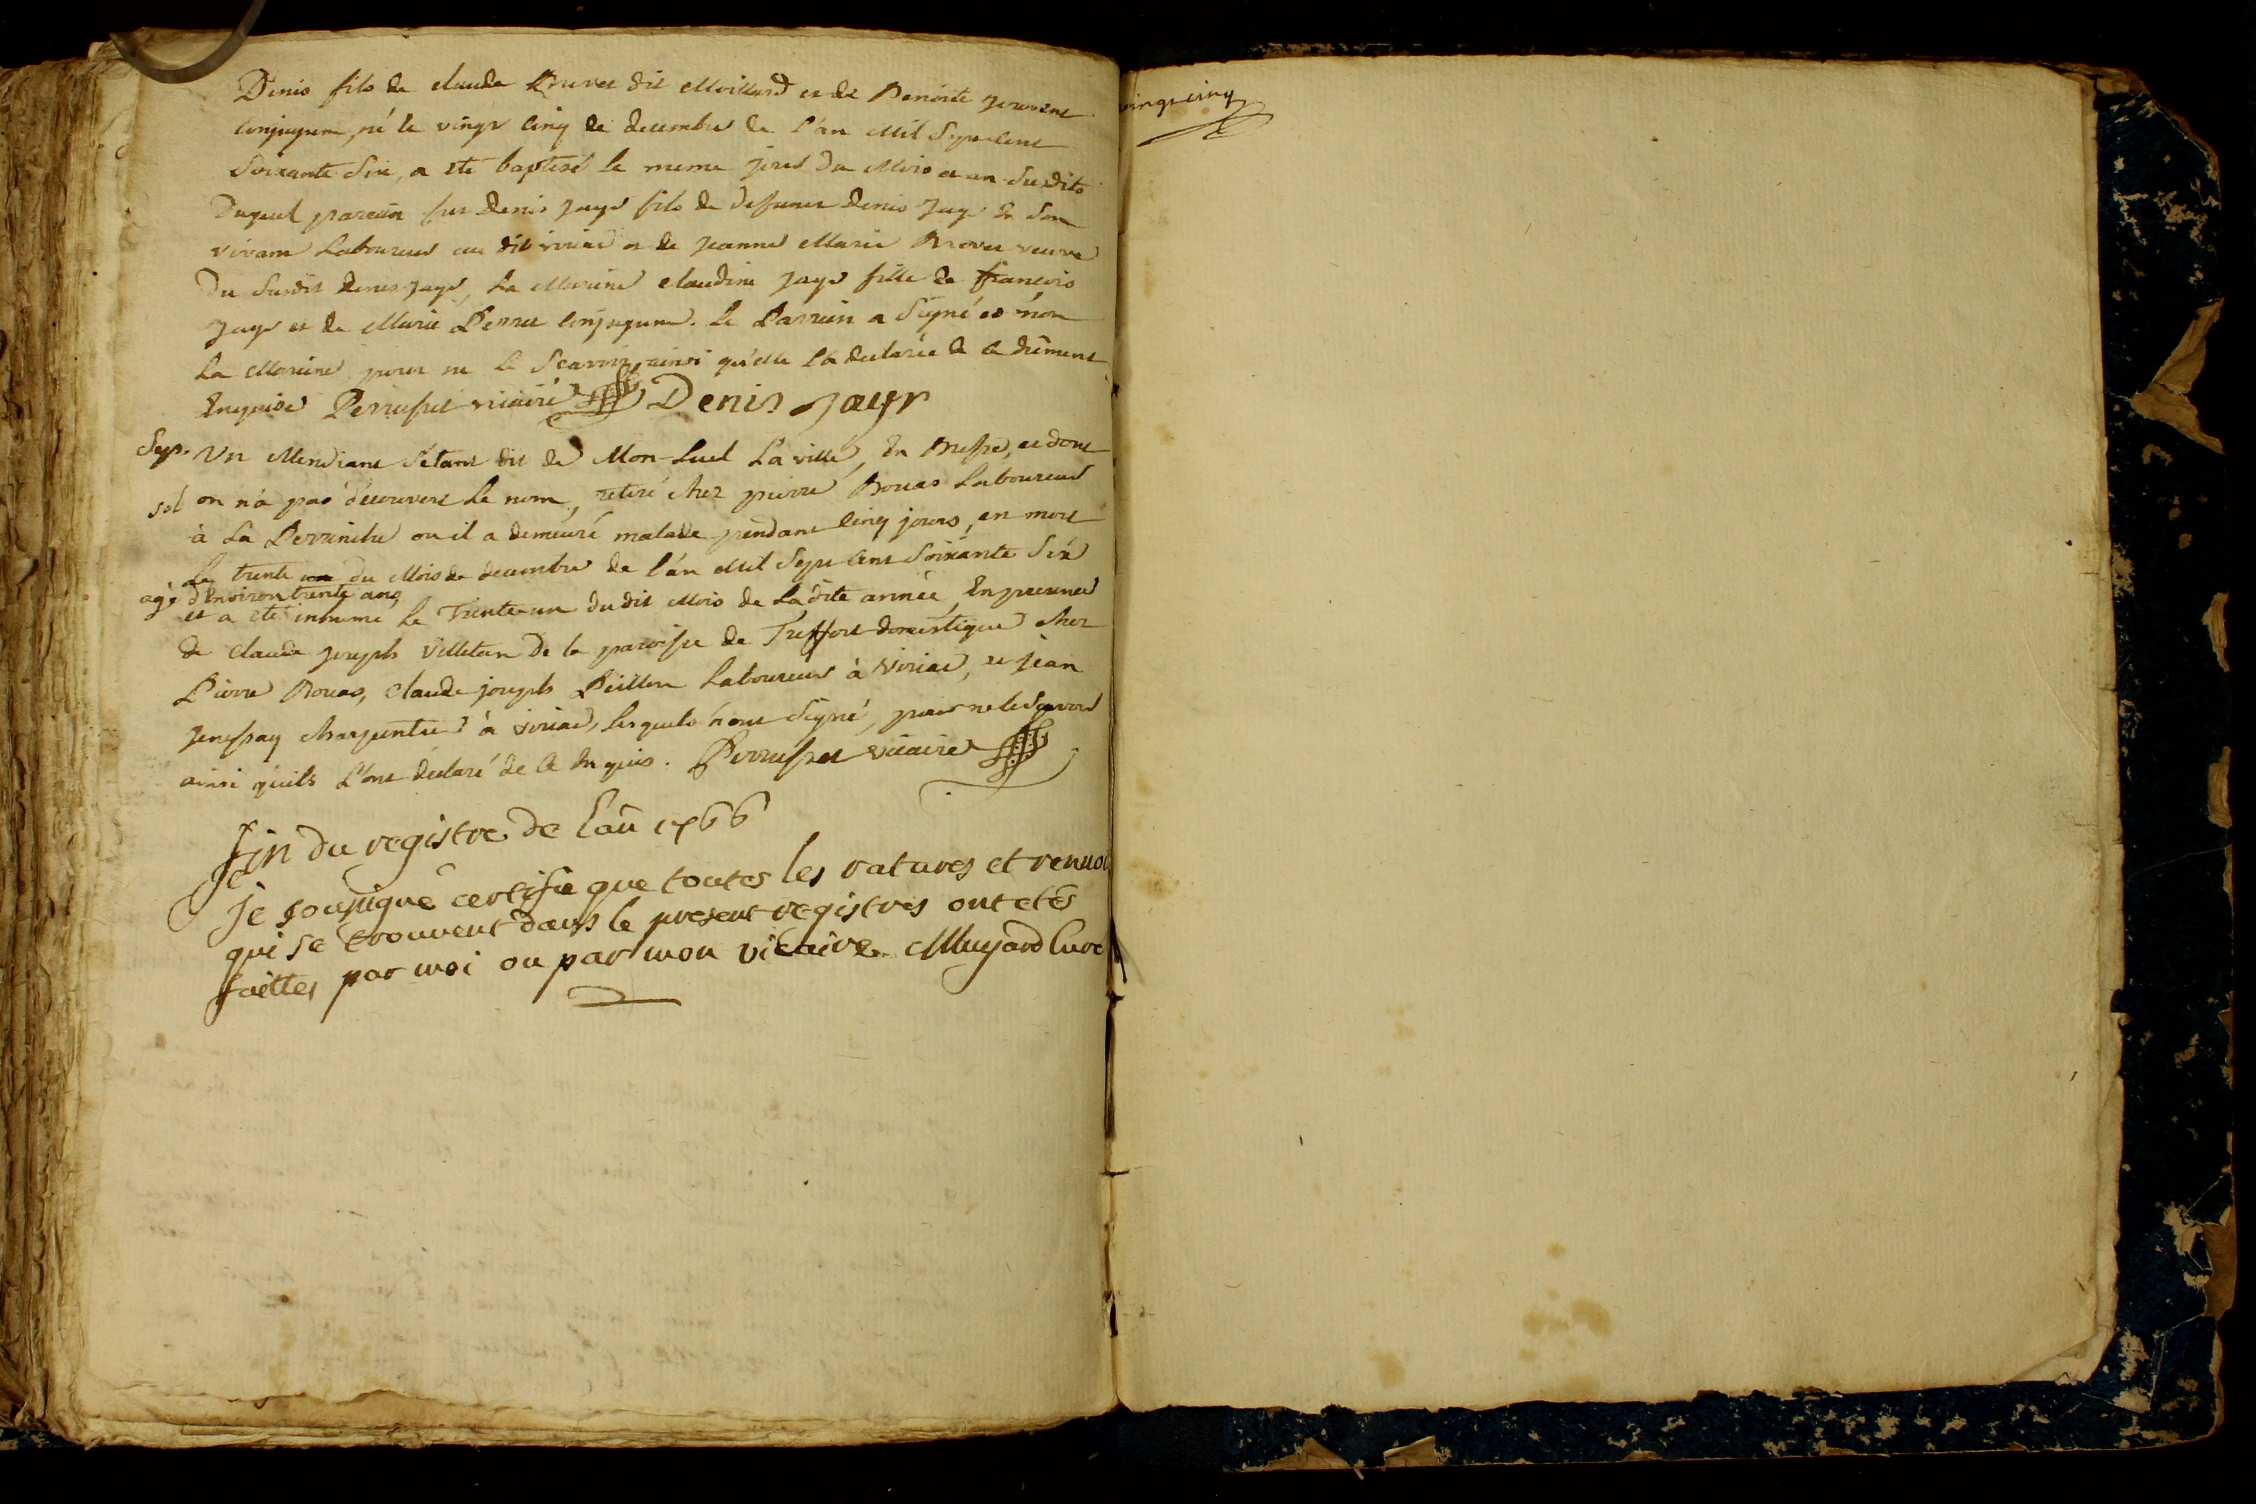 Denis fils de claude Bruvet dit Moillard et de Benoite
conjugum, né le vingt cinq de decembre de l'an Mil Sept cent
Soixante Six, a eté baptisé le meme jour du Mois et an Susdits
Duquel parein fut denis Jayr fils de deffunct denis Jayr en Son
vivant Laboureur au dit viriac et de jeanne Marie Brovet veuve
Du Susdit denis Jayr, La Mareine claudine Jayr fille de francois
Jayr et de Marie Perret Conjugum. Le Parrein a Signé et non
La Mareine pour ne le Scavoir, ainsi qu'elle l'a declarée de ce dûment
Enquise Perrusset vicaire Denis Jayr
Sep. Un Mendiant s'étant dit de Mon-Luel La ville, En Bresse, et dont
on n'a pas découvert Le nom, retiré chez pierre Bouas Laboureur
à La Perriniche ou il a demeuré malade pendant Cinq jours, en mort
Le trente un du Mois de decembre de l'an Mil Sept Cent Soixante Six
agé d'Environ trente ans
et a eté inhumé Le Trente-un du dit Mois de La dite année, En presence
de Claude joseph Villetan De la paroisse de Treffort domestique chez
Pierre Bouas, Claude joseph Peillon Laboureur à viriac, et jean
charpentier à viriac, Lesquels n'ont Signé, pour ne le Sçavoir
ainsi qu'ils L'ont déclaré de Ce Enquis. Perrusset vicaire
fin du registre de Lan 1766
Je soussigné certifie que toutes les ratures et renvoi
qui se trouvent dans le present registres ont etés
faittes par moi ou par mon vicaire. Muyard Curé
vingt cinq